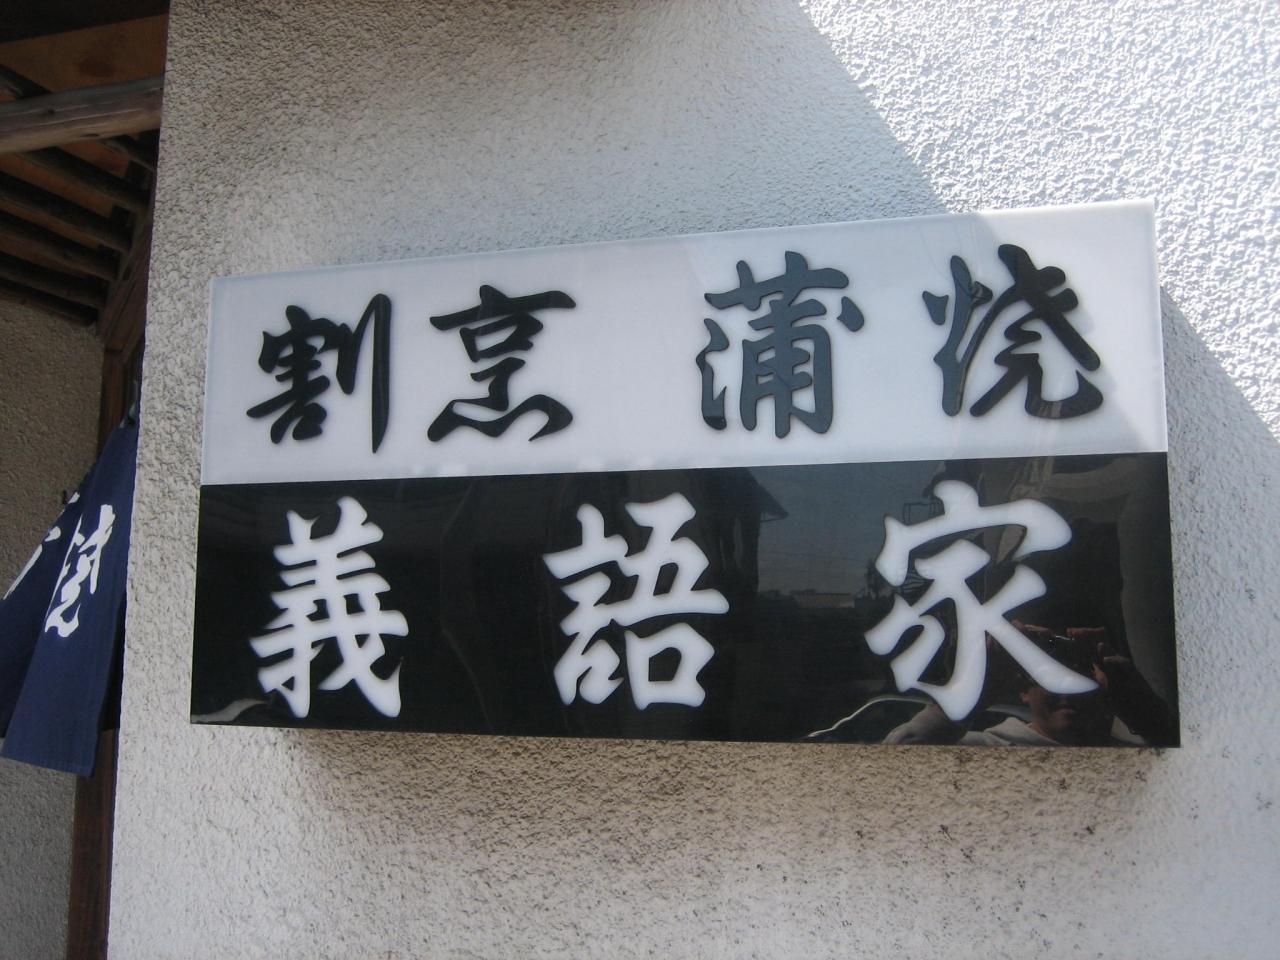 割烹 蒲焼
義語家